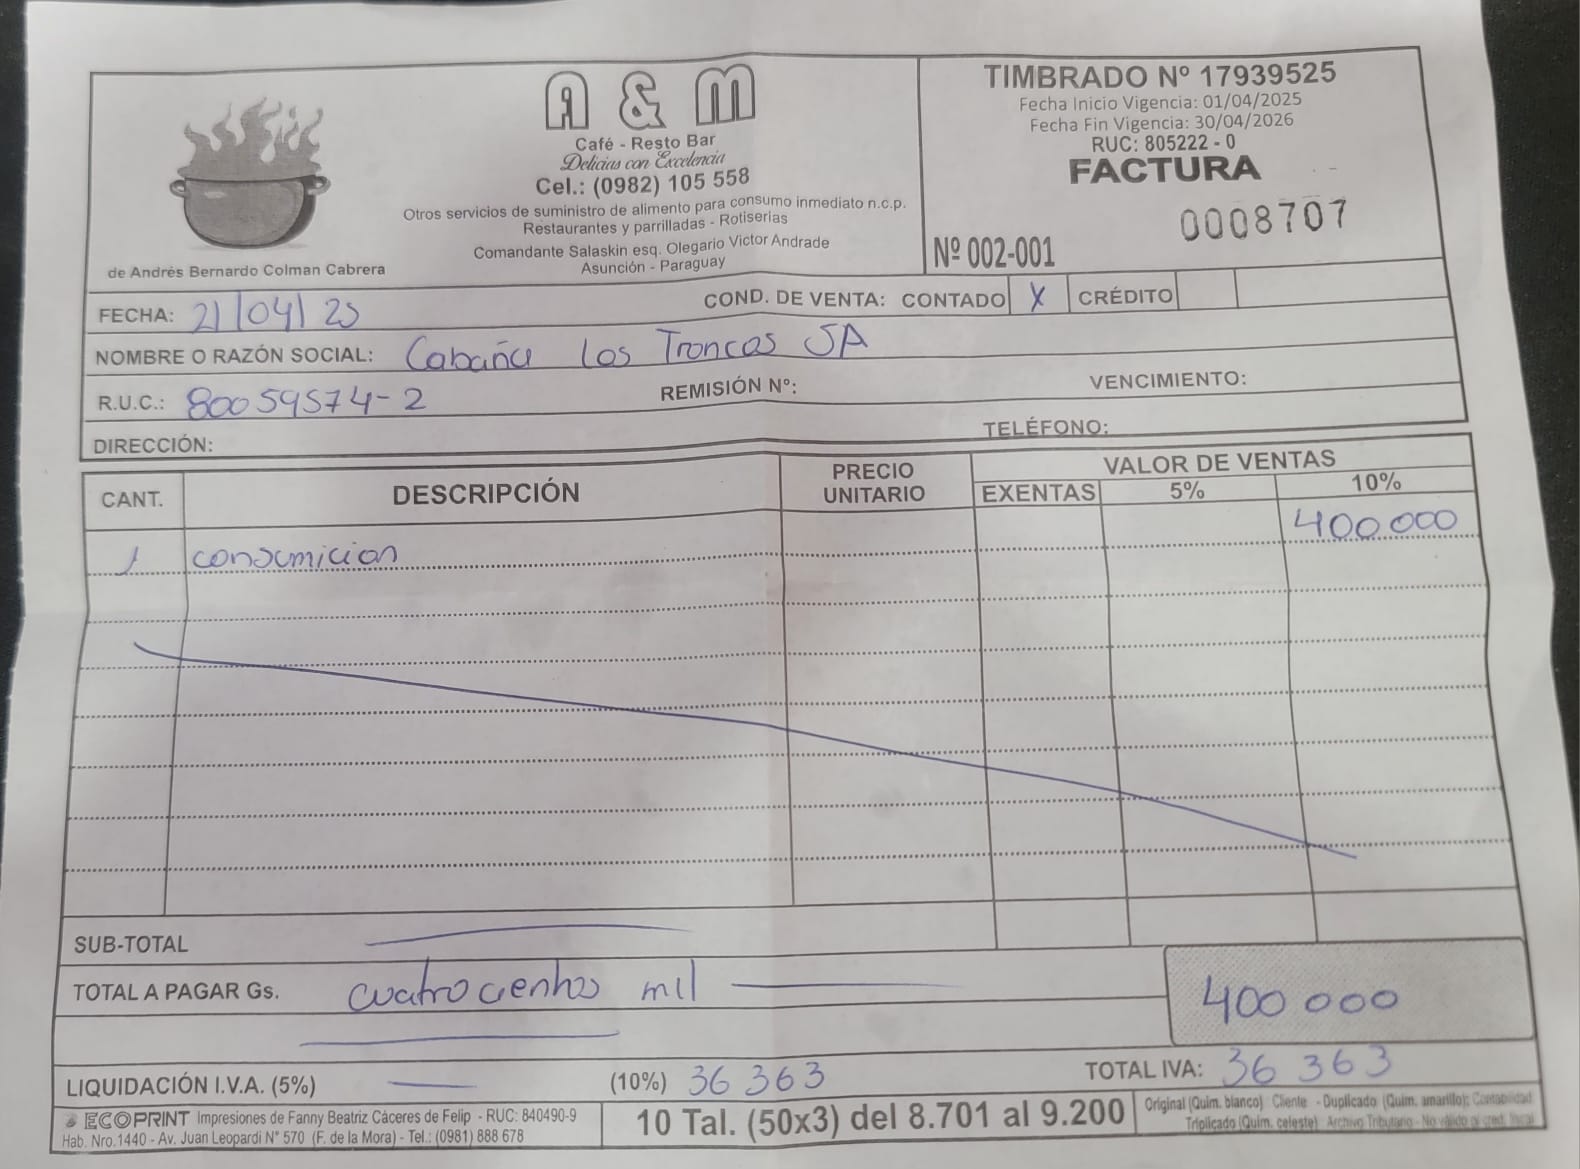 A & M
Café - Resto Bar
Delicias con Excelencia
Cel.: (0982) 105 558
Otros servicios de suministro de alimento para consumo inmediato n.c.p.
Restaurantes y parrilladas - Rotiserias
Comandante Salaskin esq. Olegario Victor Andrade
Asunción - Paraguay
de Andrés Bernardo Colman Cabrera
TIMBRADO Nº 17939525
Fecha Inicio Vigencia: 01/04/2025
Fecha Fin Vigencia: 30/04/2026
RUC: 805222 - 0
FACTURA
Nº 002-001 0008707
FECHA: 21/04/25 COND. DE VENTA: CONTADO X CRÉDITO
NOMBRE O RAZÓN SOCIAL: Cabaña Los Troncos SA
R.U.C.: 80059574-2 REMISIÓN Nº: VENCIMIENTO:
DIRECCIÓN: TELÉFONO:
CANT. DESCRIPCIÓN PRECIO UNITARIO VALOR DE VENTAS
EXENTAS 5% 10%
1 consumicion 400 000
SUB-TOTAL
TOTAL A PAGAR Gs. cuatrocientos mil 400 000
LIQUIDACIÓN I.V.A. (5%) (10%) 36 363 TOTAL IVA: 36 363
ECOPRINT Impresiones de Fanny Beatriz Cáceres de Felip - RUC: 840490-9
Hab. Nro.1440 - Av. Juan Leopardi N° 570 (F. de la Mora) - Tel.: (0981) 888 678
10 Tal. (50x3) del 8.701 al 9.200
Original (Quim. blanco): Cliente - Duplicado (Quim. amarillo): Contabilidad
Triplicado (Quim. celeste): Archivo Tributario - No válido p/ cred. fiscal